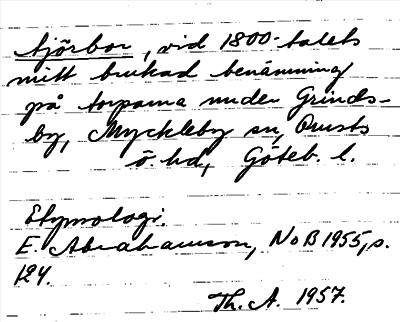 Sjörbor, vid 1800-talets
mitt brukad benämning
på torparna under Grinds-
by, Myckleby sn, Orusts
ö. hd, Göteb. l.
Etymologi.
E. Abrahamson, NoB 1955, s.
124.
Th. A. 1957.